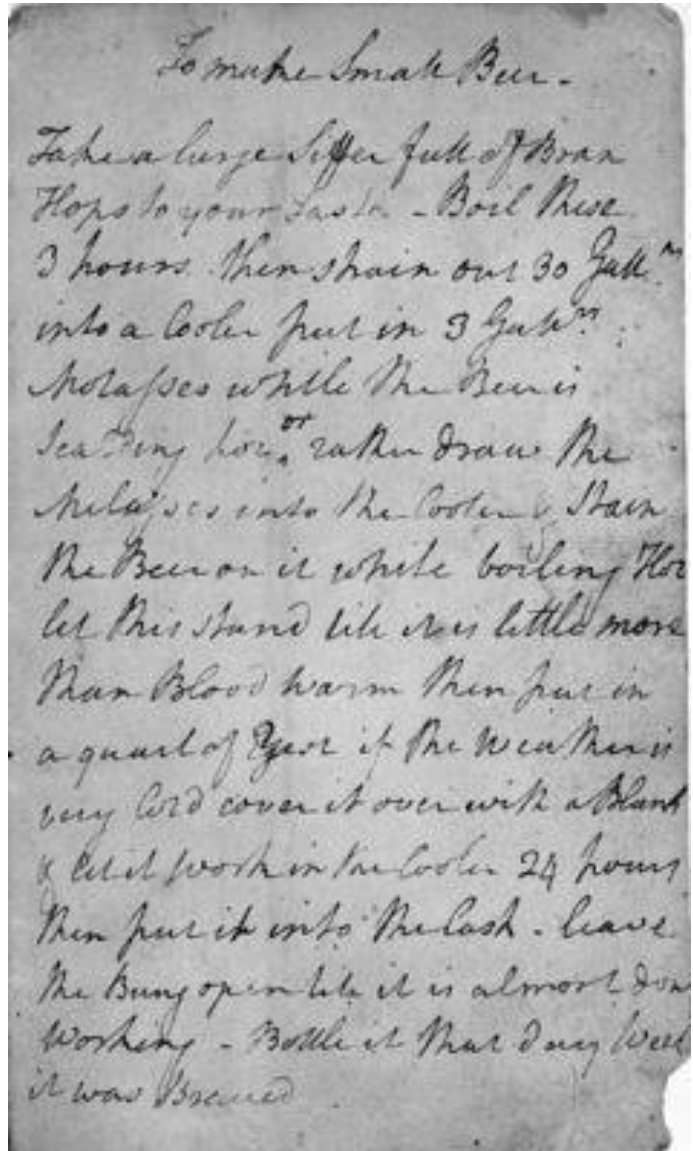 To make Small Beer -
Take a large Siffer full of Bran
Hops to your Taste - Boil these
3 hours. then strain out 30 Gall.ns
into a Cooler put in 3 Gall.ns
Molasses while the Beer is
Scalding hot or rather draw the
Melasses into the Cooler & Strain
the Beer on it while boiling Hot
let this stand till it is little more
than Blood warm then put in
a quart of Yest if the Weather is
very Cold cover it over with a Blank
& let it work in the Cooler 24 hours
then put it into the Cask - leave
the Bung open till it is almost don
working - Bottle it that day Week
it was Brewed